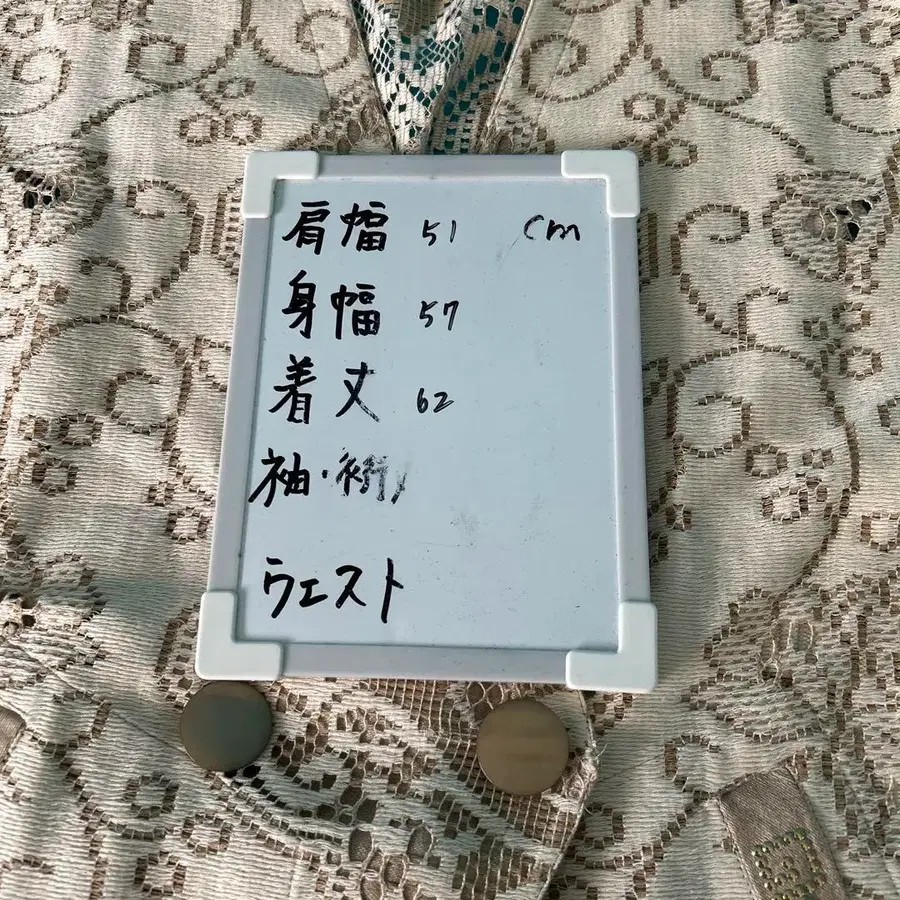 肩幅 51 cm
身幅 57
着丈 62
袖・裄
ウエスト